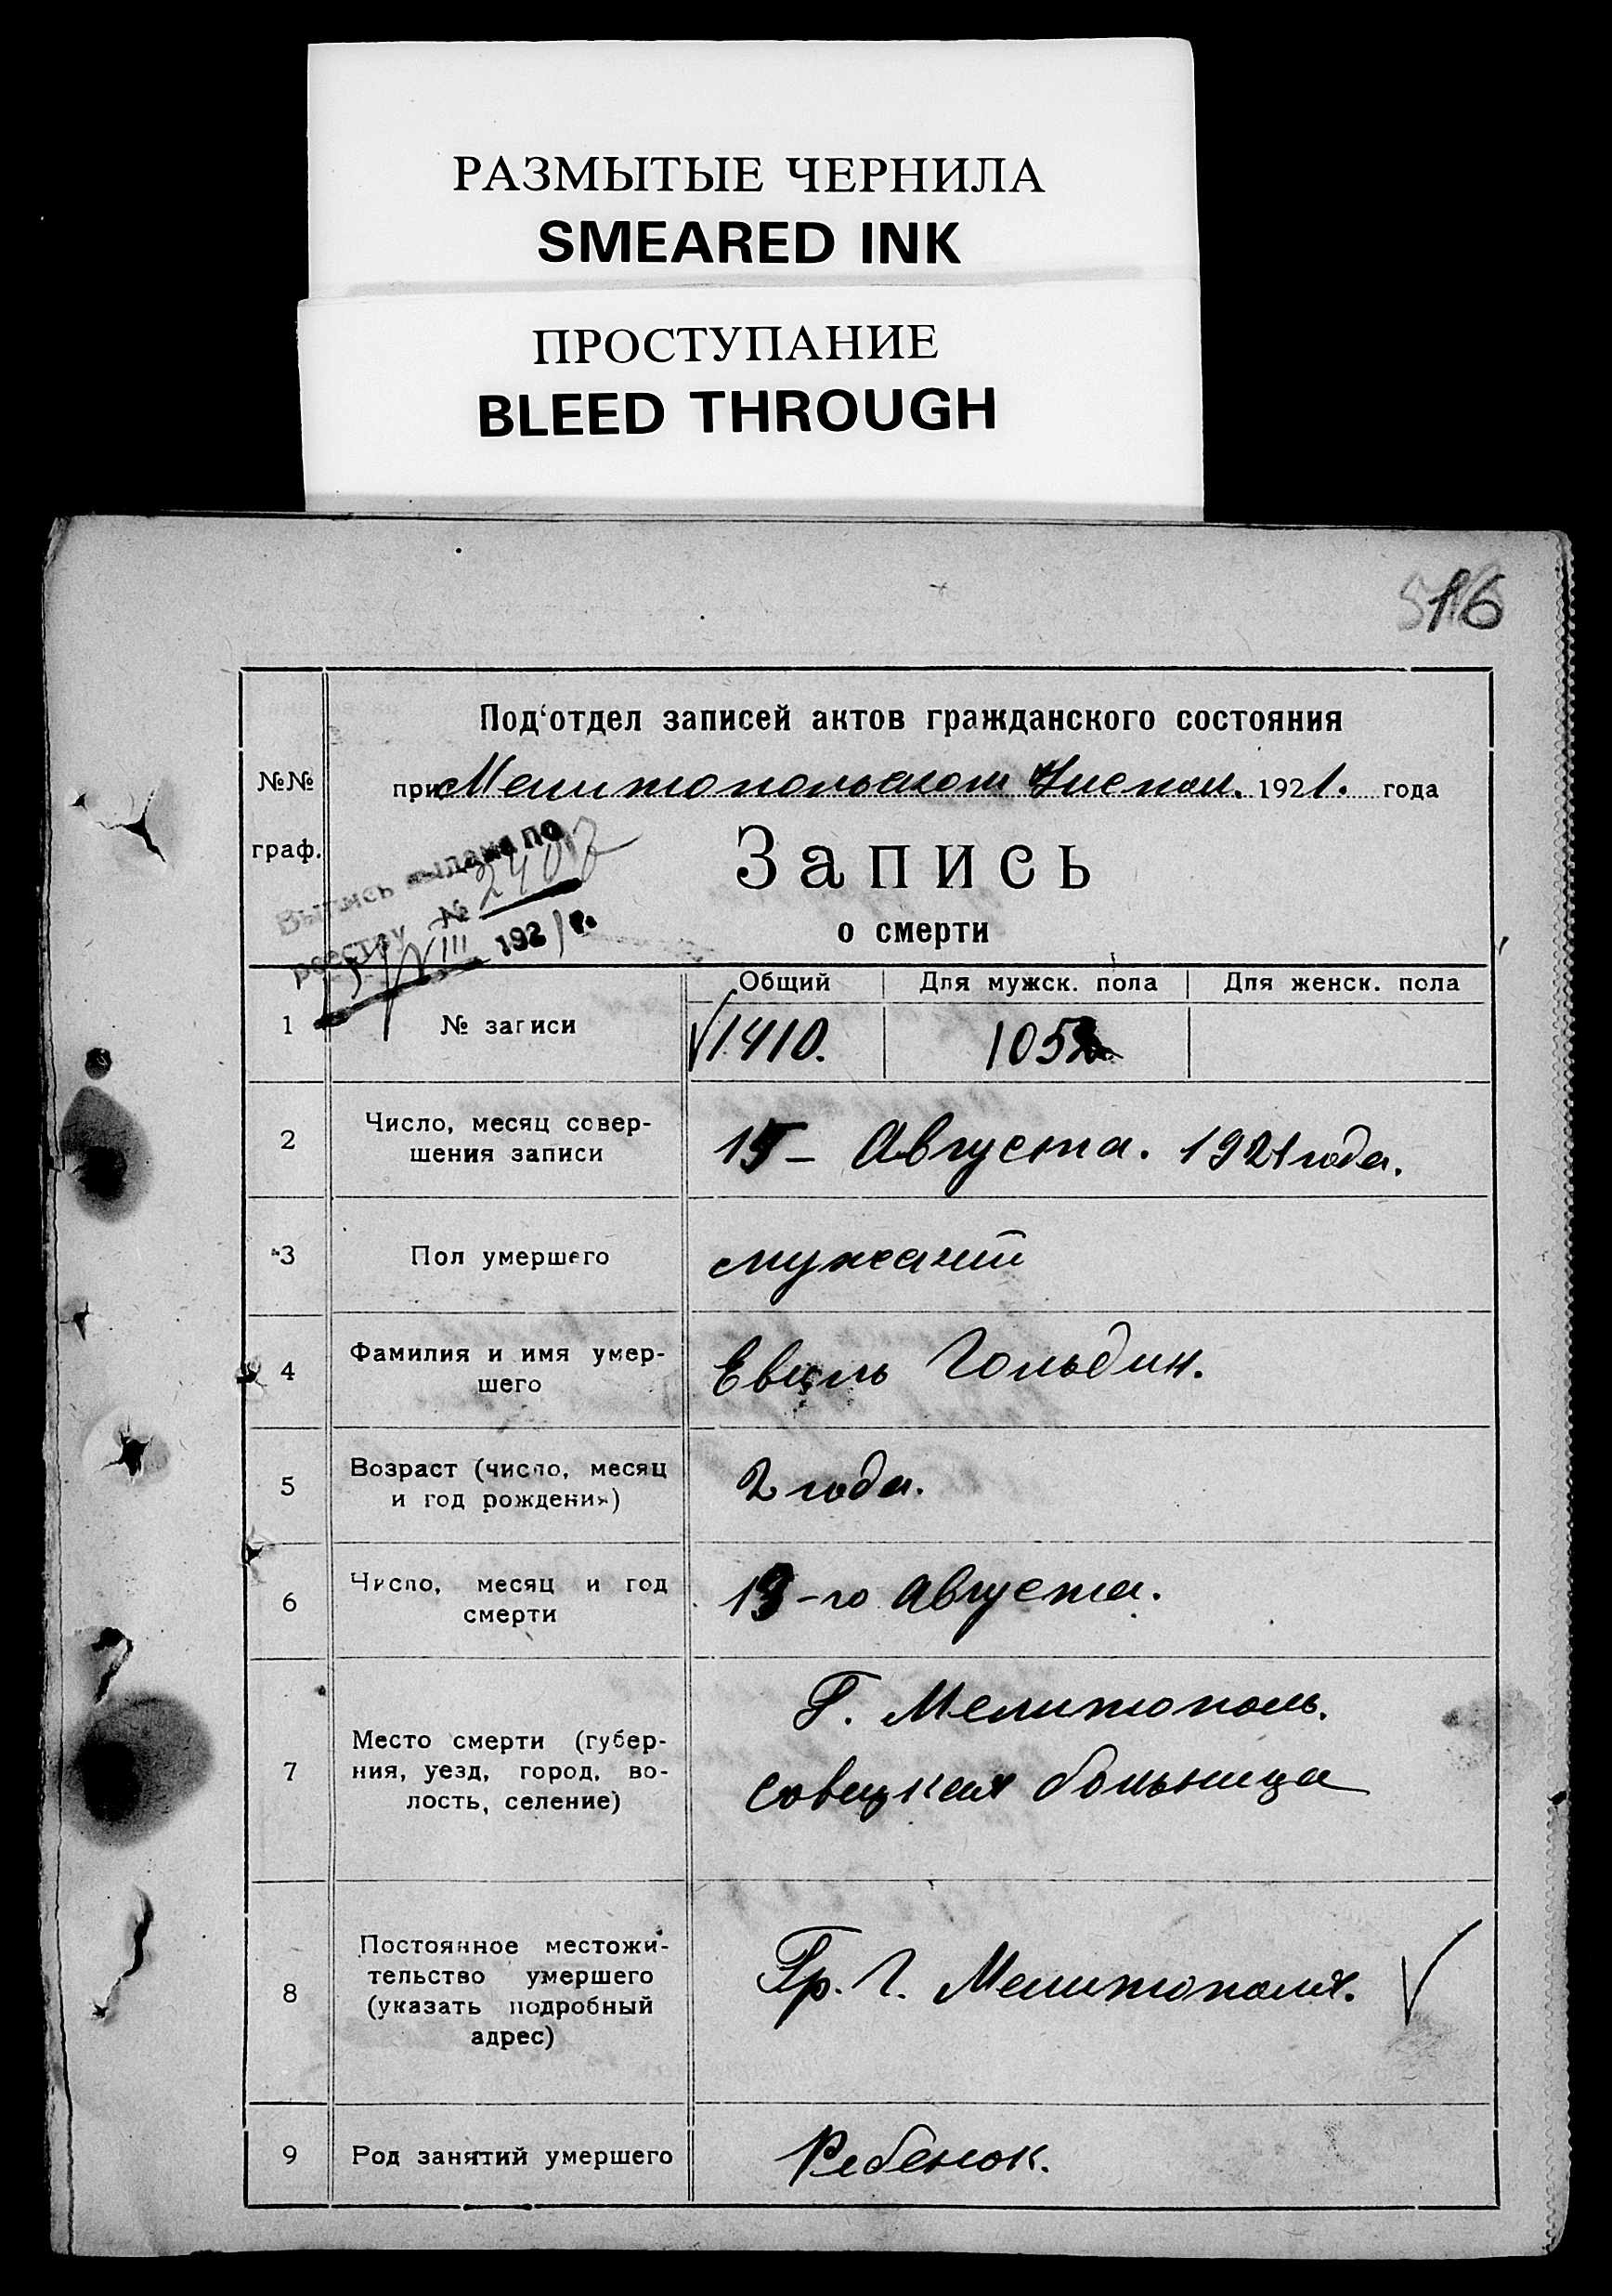 РАЗМЫТЫЕ ЧЕРНИЛА
SMEARED INK
ПРОСТУПАНИЕ
BLEED THROUGH
16
Под'отдел записей актов гражданского состояния
№№ граф.
при Мелитопольском Уисполк. 1921. года
Выпись выдана по
реестру №
VIII 1921 г.
Запись
о смерти
Общий Для мужск. пола Для женск. пола
1 № записи 1410. 1052
2 Число, месяц совер-
шения записи 15 – Августа. 1921 года.
3 Пол умершего мужский
4 Фамилия и имя умер-
шего Гольдин.
5 Возраст (число, месяц
и год рождения) 2 года.
6 Число, месяц и год
смерти 13-го Августа.
7 Место смерти (губер-
ния, уезд, город, во-
лость, селение)
Г. Мелитополь.
совецкая больница
8 Постоянное местожи-
тельство умершего
(указать подробный
адрес)
Гр. Г. Мелитополя.
9 Род занятий умершего Ребенок.